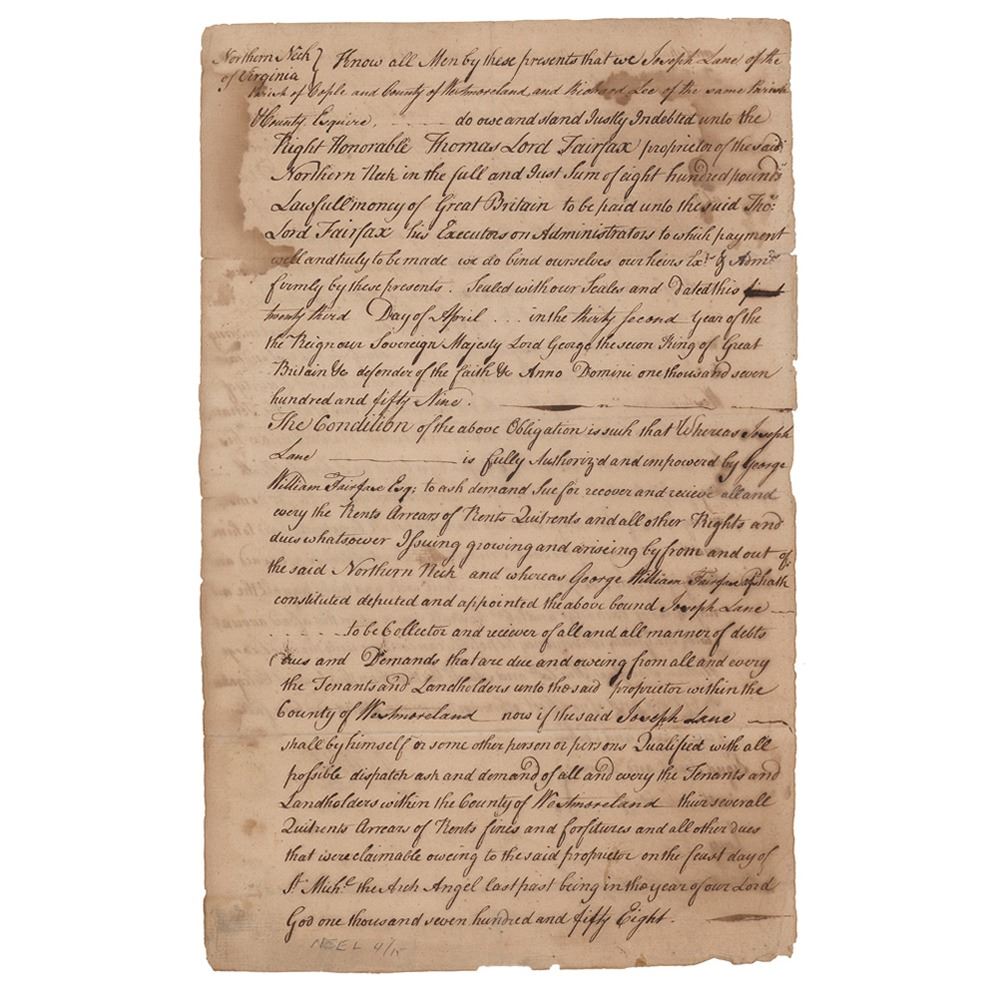 Northern Neck } Know all Men by these presents that we Joseph Lane of the
of Virginia
Parish of Cople and County of Westmoreland and Richard Lee of the same Parish
& County Esquire, . . . . . do owe and stand Justly Indebted unto the
Right Honorable Thomas Lord Fairfax proprietor of the said
Northern Neck in the full and Just Sum of eight hundred pounds
Lawfull money of Great Britain to be paid unto the said Tho:
Lord Fairfax his Executors or Administrators to which payment
well and truly to be made we do bind ourselves our heirs Exrs & Admrs
firmly by these presents. Sealed with our Seales and Dated this
twenty third Day of April . . . in the thirty Second Year of the
the Reign our Sovereign Majesty Lord George the secon King of Great
Britain &c defender of the faith &c Anno Domini one thousand seven
hundred and fifty Nine.
The Condition of the above Obligation is such that Whereas Joseph
Lane is fully Authoriz'd and impowered by George
William Fairfax Esq; to ask demand Sue for recover and recieve all and
every the Rents Arrears of Rents Quitrents and all other Rights and
dues whatsoever Issuing growing and ariseing by from and out of
the said Northern Neck and whereas George William Fairfax hath
constituted deputed and appointed the above bound Joseph Lane
. . . . . to be Collector and reciever of all and all manner of debts
dues and Demands that are due and oweing from all and every
the Tenants and Landholders unto the said proprietor within the
County of Westmoreland now if the said Joseph Lane
shall by himself or some other person or persons Qualified with all
possible dispatch ask and demand of all and every the Tenants and
Landholders within the County of Westmoreland their severall
Quitrents Arrears of Rents fines and forfitures and all other dues
that were claimable oweing to the said proprietor on the feast day of
St Michl the Arch Angel last past being in the year of our Lord
God one thousand seven hundred and fifty Eight.